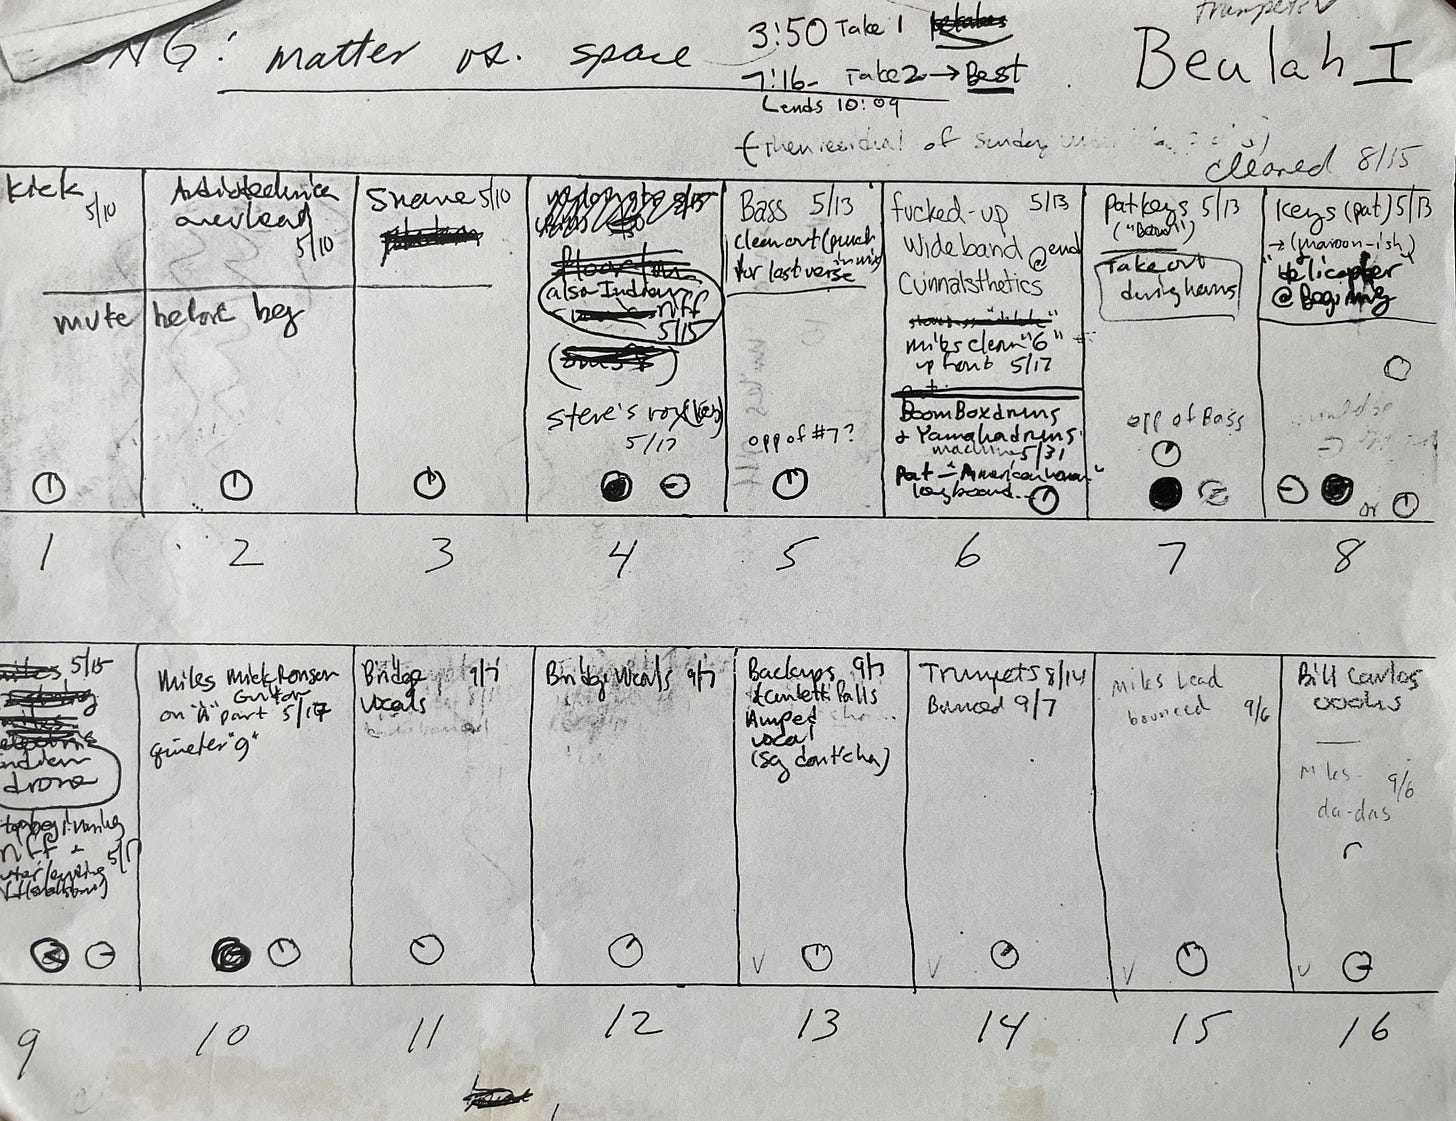 NG: matter vs. space
3:50 Take 1
7:16- Take 2 → Best
ends 10:09
(then residual of Sunday
trumpets
Beulah I
cleaned 8/15
Kick 5/10
Audiotechnica
overhead
5/10
mute before beg
Snare 5/10
also Indian
riff
5/15
steve's
5/17
Bass 5/13
clean out (punch
in mix)
for last verse
opp of #7?
fucked-up 5/13
Wideband @end
Cunnalsthetics
miles clean "6"
up front 5/17
BoomBox drums
& Yamaha drums
machine 5/31
Pat - "American woman"
keyboard...
pat keys 5/13
Take out
during hems
opp of Bass
Keys (pat) 5/13
→ (maroon-ish)
"helicopter
@ Begining
or
1 2 3 4 5 6 7 8
5/15
indian
drone
beginning
riff +
5/17
miles mick Ronson
Guitar
on "A" part 5/17
quieter "9"
Bridge 9/7
vocals
Bridge vocals 9/7
Backups 9/7
Amped
vocal
(sg dontcha)
Trumpets 8/14
Bounced 9/7
Miles Lead
bounced 9/6
Bill Carlos
ooohs
Miles- 9/6
da-das
9 10 11 12 13 14 15 16